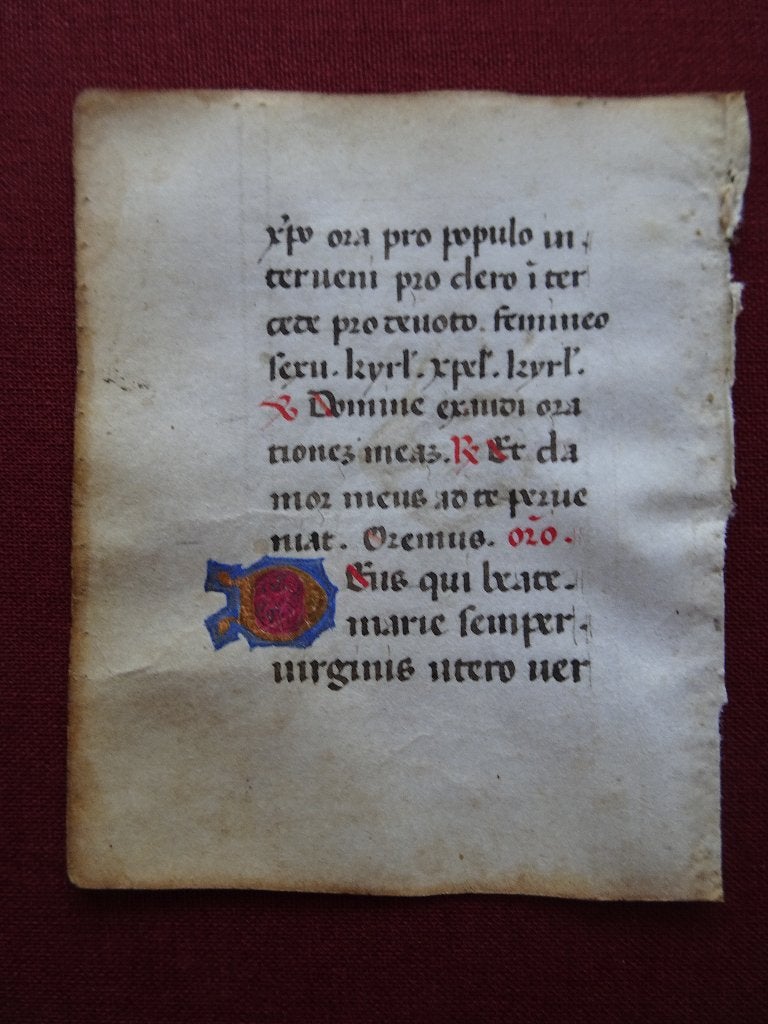 xp̄o ora pro populo in
terueni pro clero ĩter
cede pro deuoto femineo
sexu. kyrl'. xpel'. kyrl'.
℣ Domine exaudi ora
tionez meaz. ℟ Et cla
mor meus ad te perue
niat. Oremus. or̄o.
Deus qui beate
marie semper
uirginis utero uer